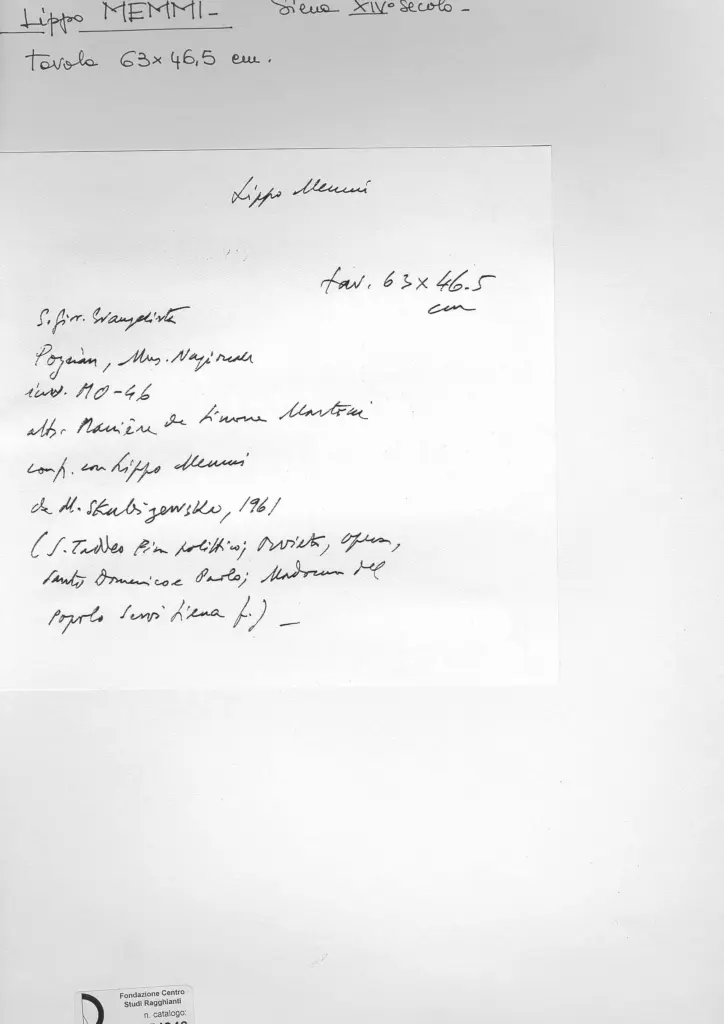 Lippo MEMMI - Siena XIV° secolo -
tavola 63 x 46,5 cm.
Lippo Memmi
tav. 63 x 46.5
cm
S. Giov. Evangelista
Poznan, Mus. Nazionale
inv. MO-46
attr. Manière de Simone Martini
conf. con Lippo Memmi
da M. Skubiszewska, 1961
(S. Taddeo Pisa polittico; Orvieto, Opera,
Santi Domenico e Paolo; Madonna del
Popolo Servi Siena f.) _
Fondazione Centro
Studi Ragghianti
n. catalogo: